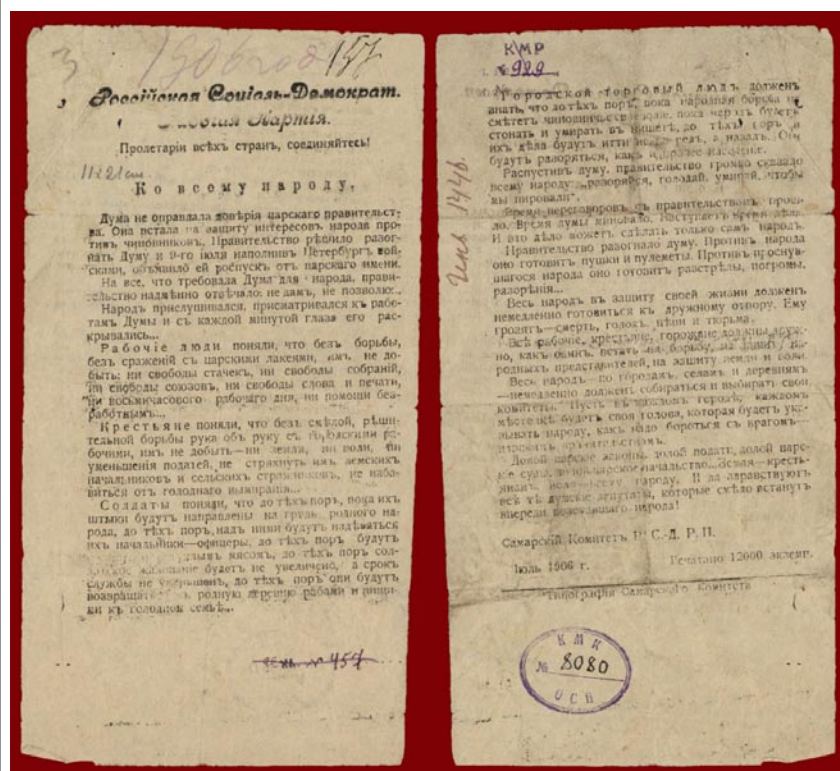 3
1906 год
157
Россійская Соціаль-Демократ.
Партія.
Пролетаріи всѣхъ стран, соединяйтесь!
11х21см.
Ко всему народу.
Дума не оправдала довѣрія царскаго правительст-
ва. Она встала на защиту интересов народа про-
тивъ чиновниковъ. Правительство рѣшило разог-
нать Думу и 9-го іюля наполнивъ Петербургъ вой-
сками, объявило ей роспускъ отъ царскаго имени.
На все, что требовала Дума для народа, прави-
тельство надменно отвѣчало: не дамъ, не позволю...
Народъ прислушивался, присматривался къ рабо-
тамъ Думы и съ каждой минутой глаза его рас-
крывались...
Рабочіе люди поняли, что безъ борьбы,
безъ сраженій съ царскими лакеями, имъ не до-
быть: ни свободы стачекъ, ни свободы собраній,
ни свободы союзовъ, ни свободы слова и печати,
ни восьмичасового рабочаго дня, ни помощи без-
работнымъ...
Крестьяне поняли, что безъ смѣлой, рѣши-
тельной борьбы рука объ руку съ городскими ра-
бочими, имъ не добыть—ни земли, ни воли, ни
уменьшенія податей, не стряхнуть имъ земскихъ
начальниковъ и сельскихъ стражниковъ, не изба-
виться отъ голоднаго вымиранія...
Солдаты поняли, что до тѣхъ поръ, пока ихъ
штыки будутъ направлены на грудь родного на-
рода, до тѣхъ поръ, надъ ними будутъ издѣваться
ихъ начальники—офицеры, до тѣхъ поръ будутъ
мясомъ, до тѣхъ поръ сол-
будетъ не увеличено, а срокъ
службы не уменьшенъ, до тѣхъ поръ они будутъ
возвращаться въ родную деревню рабами и нищи-
ми къ голодной семьѣ...
№ 457
КМР
№ 929
Городской торговый людъ долженъ
знать, что до тѣхъ поръ, пока народная борьба не
сметётъ чиновничье пока народъ будетъ
стонать и умирать въ нищетѣ, до тѣхъ поръ и
ихъ дѣла будутъ итти не впередъ, а назадъ. Они
будутъ разоряться, какъ и
Распустивъ думу, правительство громко сказало
всему народу: „разоряйся, голодай, умирай, чтобы
мы пировали".
Время переговоровъ съ правительствомъ прош-
ло. Время думы миновало. Наступаетъ время дѣла.
И это дѣло можетъ сдѣлать только самъ народъ.
Правительство разогнало думу. Противъ народа
оно готовитъ пушки и пулеметы. Противъ проснув-
шагося народа оно готовитъ разстрѣлы, погромы,
разорѣнія...
Весь народъ въ защиту своей жизни долженъ
немедленно готовиться къ дружному отпору. Ему
грозятъ—смерть, голодъ, цѣпи и тюрьма.
Всѣ рабочіе, крестьяне, горожане должны друж-
но, какъ одинъ, встать на борьбу, на защиту на-
родныхъ представителей, на защиту земли и воли.
Весь народъ—по городамъ, селамъ и деревнямъ
—немедленно долженъ собираться и выбирать свои
комитеты. Пусть въ каждомъ городѣ, каждомъ
мѣстечкѣ будетъ своя голова, которая будетъ ука-
зывать народу, какъ надо бороться съ врагомъ—
правительствомъ.
Долой царскіе законы, долой подати, долой царс-
кіе суды, долой царское начальство... Земля—кресть-
янамъ, воля—всему народу. И да здравствуютъ
всѣ тѣ думскіе депутаты, которые смѣло встанутъ
впереди возставшаго народа!
Самарскій Комитетъ Р. С.-Д. Р. П.
Іюль 1906 г. Печатано 12000 экземп.
Типографія Самарскаго Комитета
КМК
№ 8080
ОСВ